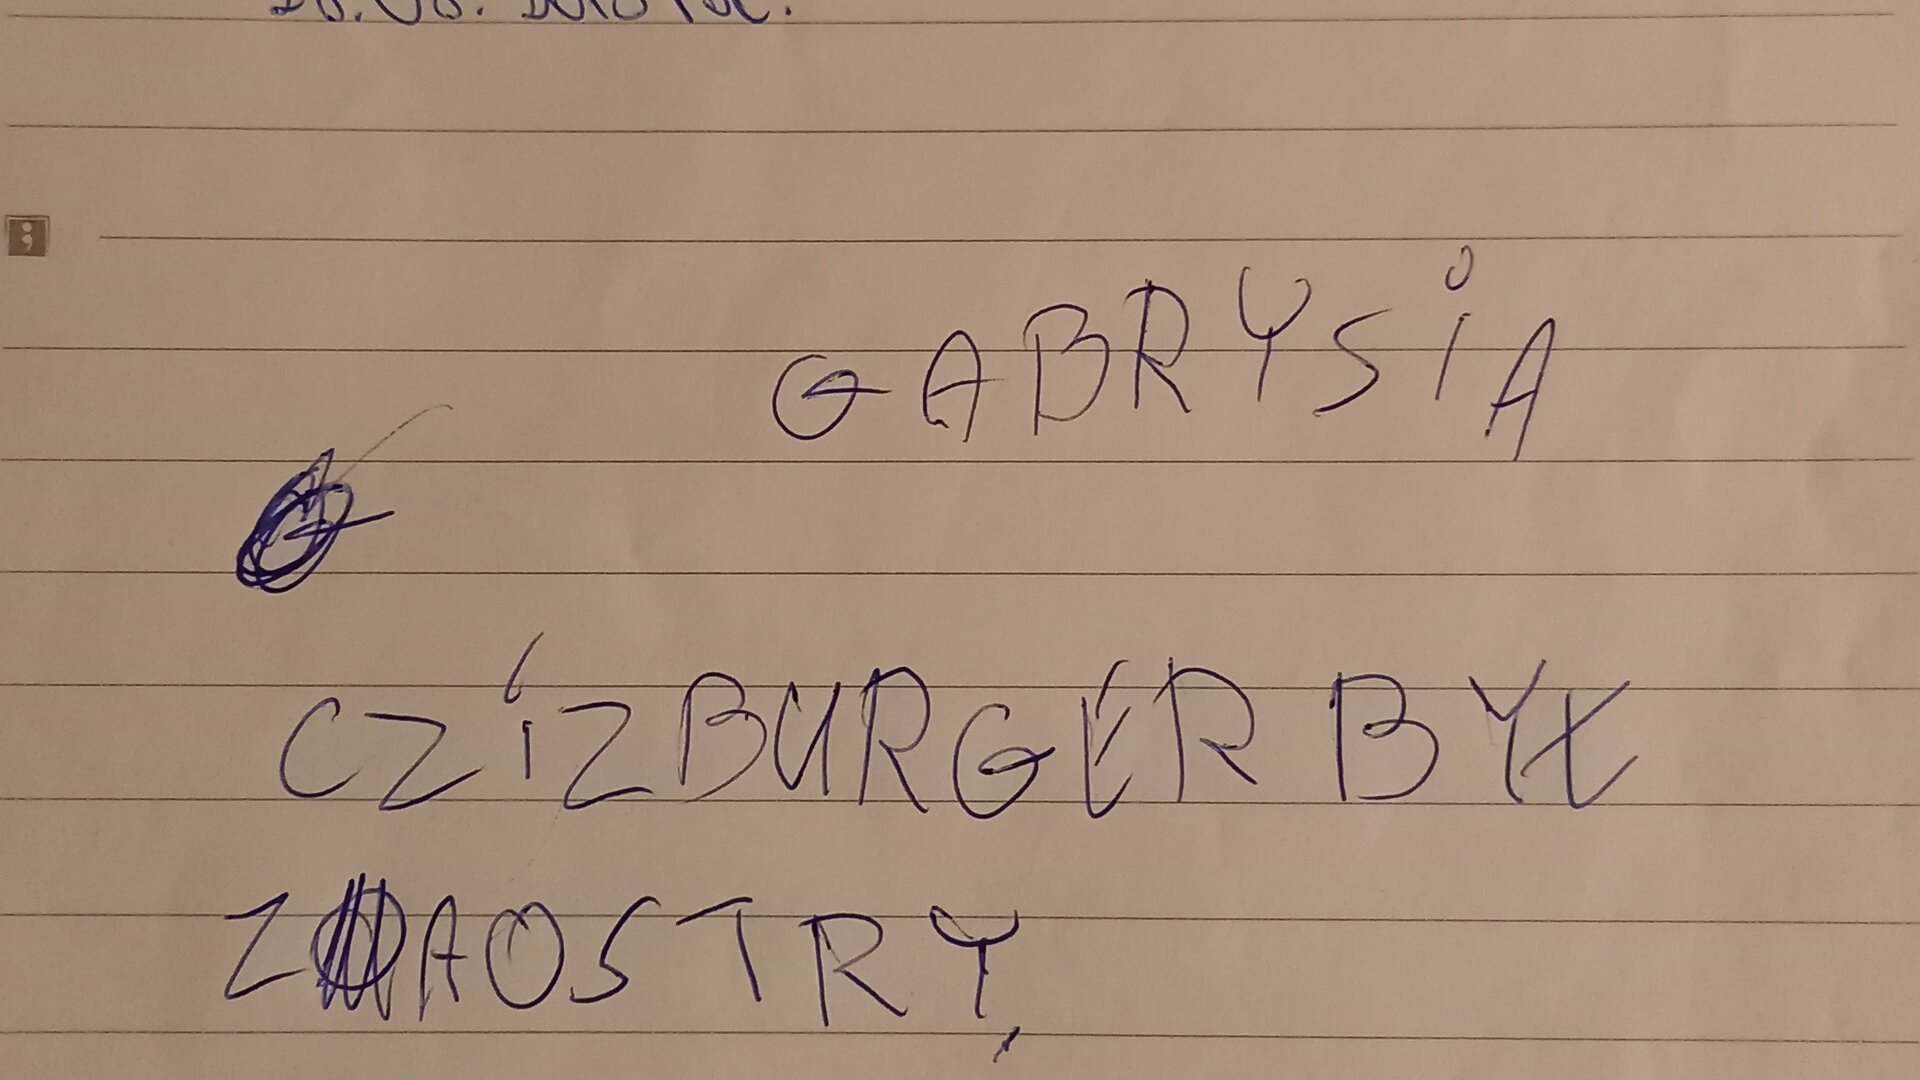 GABRYSiA
CZiZBURGER BYŁ
ZAOSTRY,